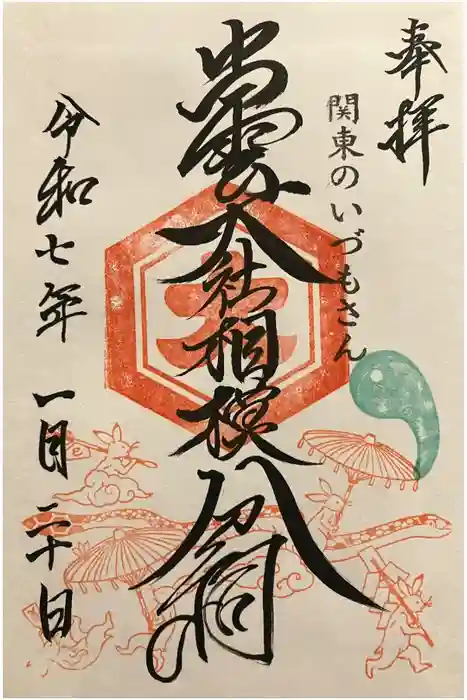 奉拝
関東のいづもさん
出雲大社相模分祠
令和七年一月二十日